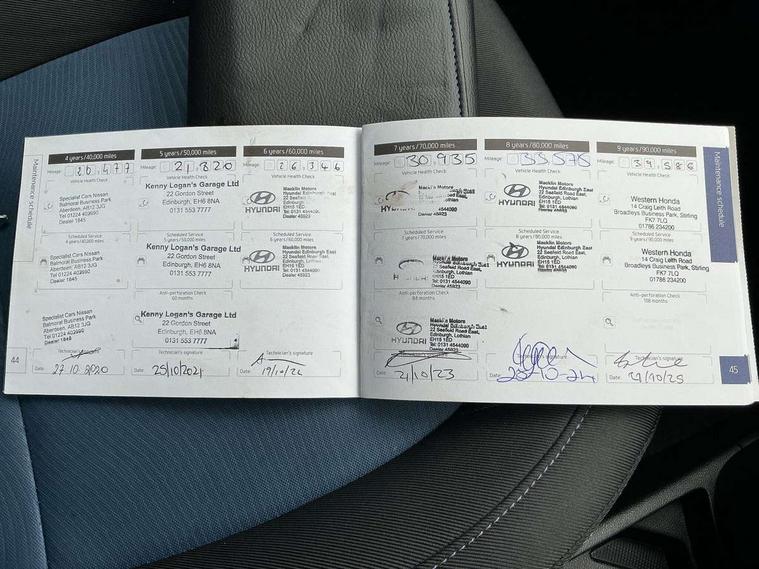 Maintenance schedule
4 years/40,000 miles
Mileage: 20,477
Vehicle Health Check
Specialist Cars Nissan
Balmoral Business Park
Aberdeen, AB12 3JG
Tel 01224
Dealer 1845
Scheduled Service
4 years/40,000 miles
Specialist Cars Nissan
Balmoral Business Park
Aberdeen, AB12 3JG
Tel 01224
Dealer 1845
Specialist Cars Nissan
Balmoral Business Park
Aberdeen, AB12 3JG
Tel 01224
Dealer 1845
Technician's signature
Date: 27.10.2020
44
5 years/50,000 miles
Mileage: 21,820
Vehicle Health Check
Kenny Logan's Garage Ltd
22 Gordon Street
Edinburgh, EH6 8NA
0131 553 7777
Scheduled Service
5 years/50,000 miles
Kenny Logan's Garage Ltd
22 Gordon Street
Edinburgh, EH6 8NA
0131 553 7777
Anti-perforation Check
60 months
Kenny Logan's Garage Ltd
22 Gordon Street
Edinburgh, EH6 8NA
0131 553 7777
Technician's signature
Date: 25/10/2021
6 years/60,000 miles
Mileage: 26,346
Vehicle Health Check
HYUNDAI
Macklin Motors
Hyundai Edinburgh East
22 Seafield Road East,
Edinburgh, Lothian
EH15 1ED
Tel: 0131 4544090
Dealer 45923
Scheduled Service
6 years/60,000 miles
HYUNDAI
Macklin Motors
Hyundai Edinburgh East
22 Seafield Road East,
Edinburgh, Lothian
EH15 1ED
Tel: 0131 4544090
Dealer 45923
Technician's signature
Date: 19/10/22
7 years/70,000 miles
Mileage: 30,935
Vehicle Health Check
Scheduled Service
7 years/70,000 miles
Anti-perforation Check
84 months
HYUNDAI
Macklin Motors
Hyundai Edinburgh East
22 Seafield Road East,
Edinburgh, Lothian
EH15 1ED
Tel: 0131 4544090
Dealer 45923
Date: 21/10/23
8 years/80,000 miles
Mileage: 33,578
Vehicle Health Check
HYUNDAI
Macklin Motors
Hyundai Edinburgh East
22 Seafield Road East,
Edinburgh, Lothian
EH15 1ED
Tel: 0131 4544090
Dealer 45923
Scheduled Service
8 years/80,000 miles
HYUNDAI
Macklin Motors
Hyundai Edinburgh East
22 Seafield Road East,
Edinburgh, Lothian
EH15 1ED
Tel: 0131 4544090
Technician's signature
Date:
9 years/90,000 miles
Mileage: 39,586
Vehicle Health Check
Western Honda
14 Craig Leith Road
Broadleys Business Park, Stirling
FK7 7LQ
01786 234200
Scheduled Service
9 years/90,000 miles
Western Honda
14 Craig Leith Road
Broadleys Business Park, Stirling
FK7 7LQ
01786 234200
Anti-perforation Check
108 months
Technician's signature
Date: 21/10/25
Maintenance schedule
45